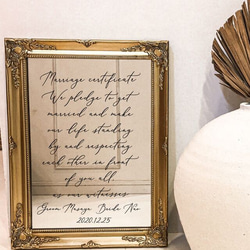 Marriage certificate
We pledge to get
married and make
our life standing
by and respecting
each other in front
of you all,
as our witnesses
Groom Bride
2020.12.25